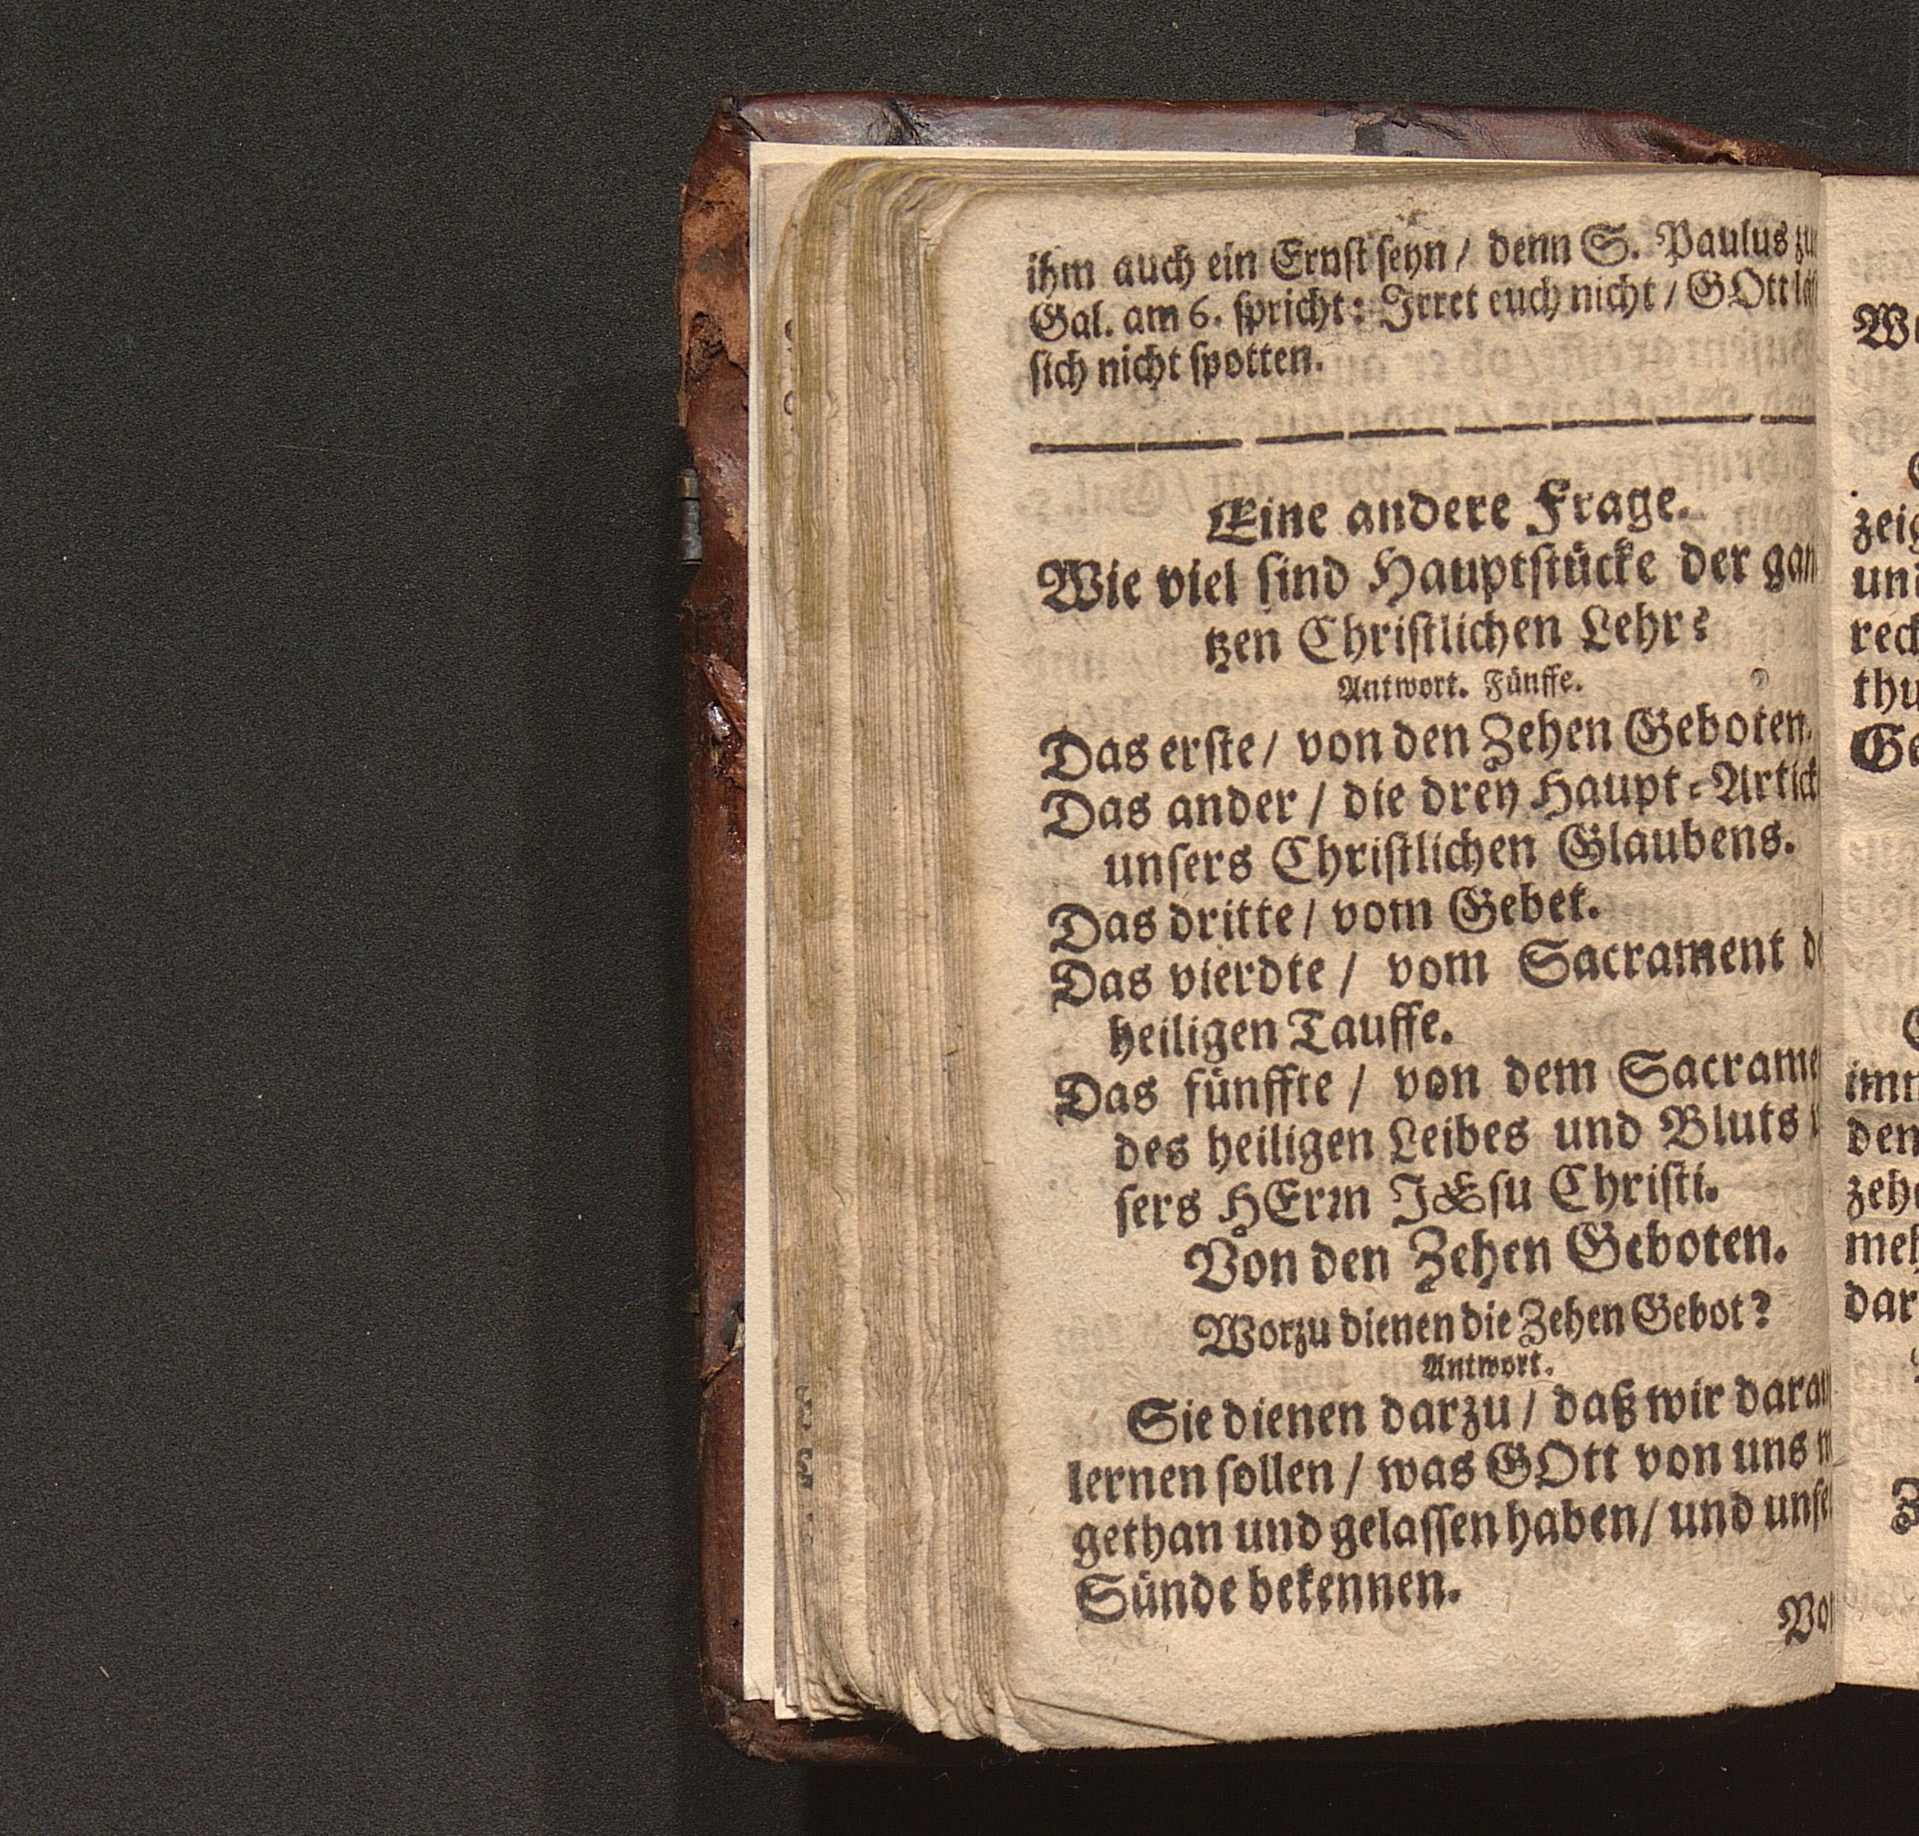 ihm auch ein Ernst seyn / denn S. Paulus
Gal. am 6. spricht: Irret euch nicht / GOtt
sich nicht spotten.
Eine andere Frage.
Wie viel sind Hauptstücke der gan
tzen Christlichen Lehr?
Antwort. Fünffe.
Das erste / von den Zehen Geboten.
Das ander / die drey Haupt-Artick
unsers Christlichen Glaubens.
Das dritte / vom Gebet.
Das vierdte / vom Sacrament
heiligen Tauffe.
Das fünffte / von dem Sacrame
des heiligen Leibes und Bluts
sers HErrn JEsu Christi.
Von den Zehen Geboten.
Worzu dienen die Zehen Gebot?
Antwort.
Sie dienen darzu / daß wir darau
lernen sollen / was GOtt von uns
gethan und gelassen haben / und unse
Sünde bekennen.
Vo
zeig
und
rech
thu
Ge
imm
den
zehe
meh
dar